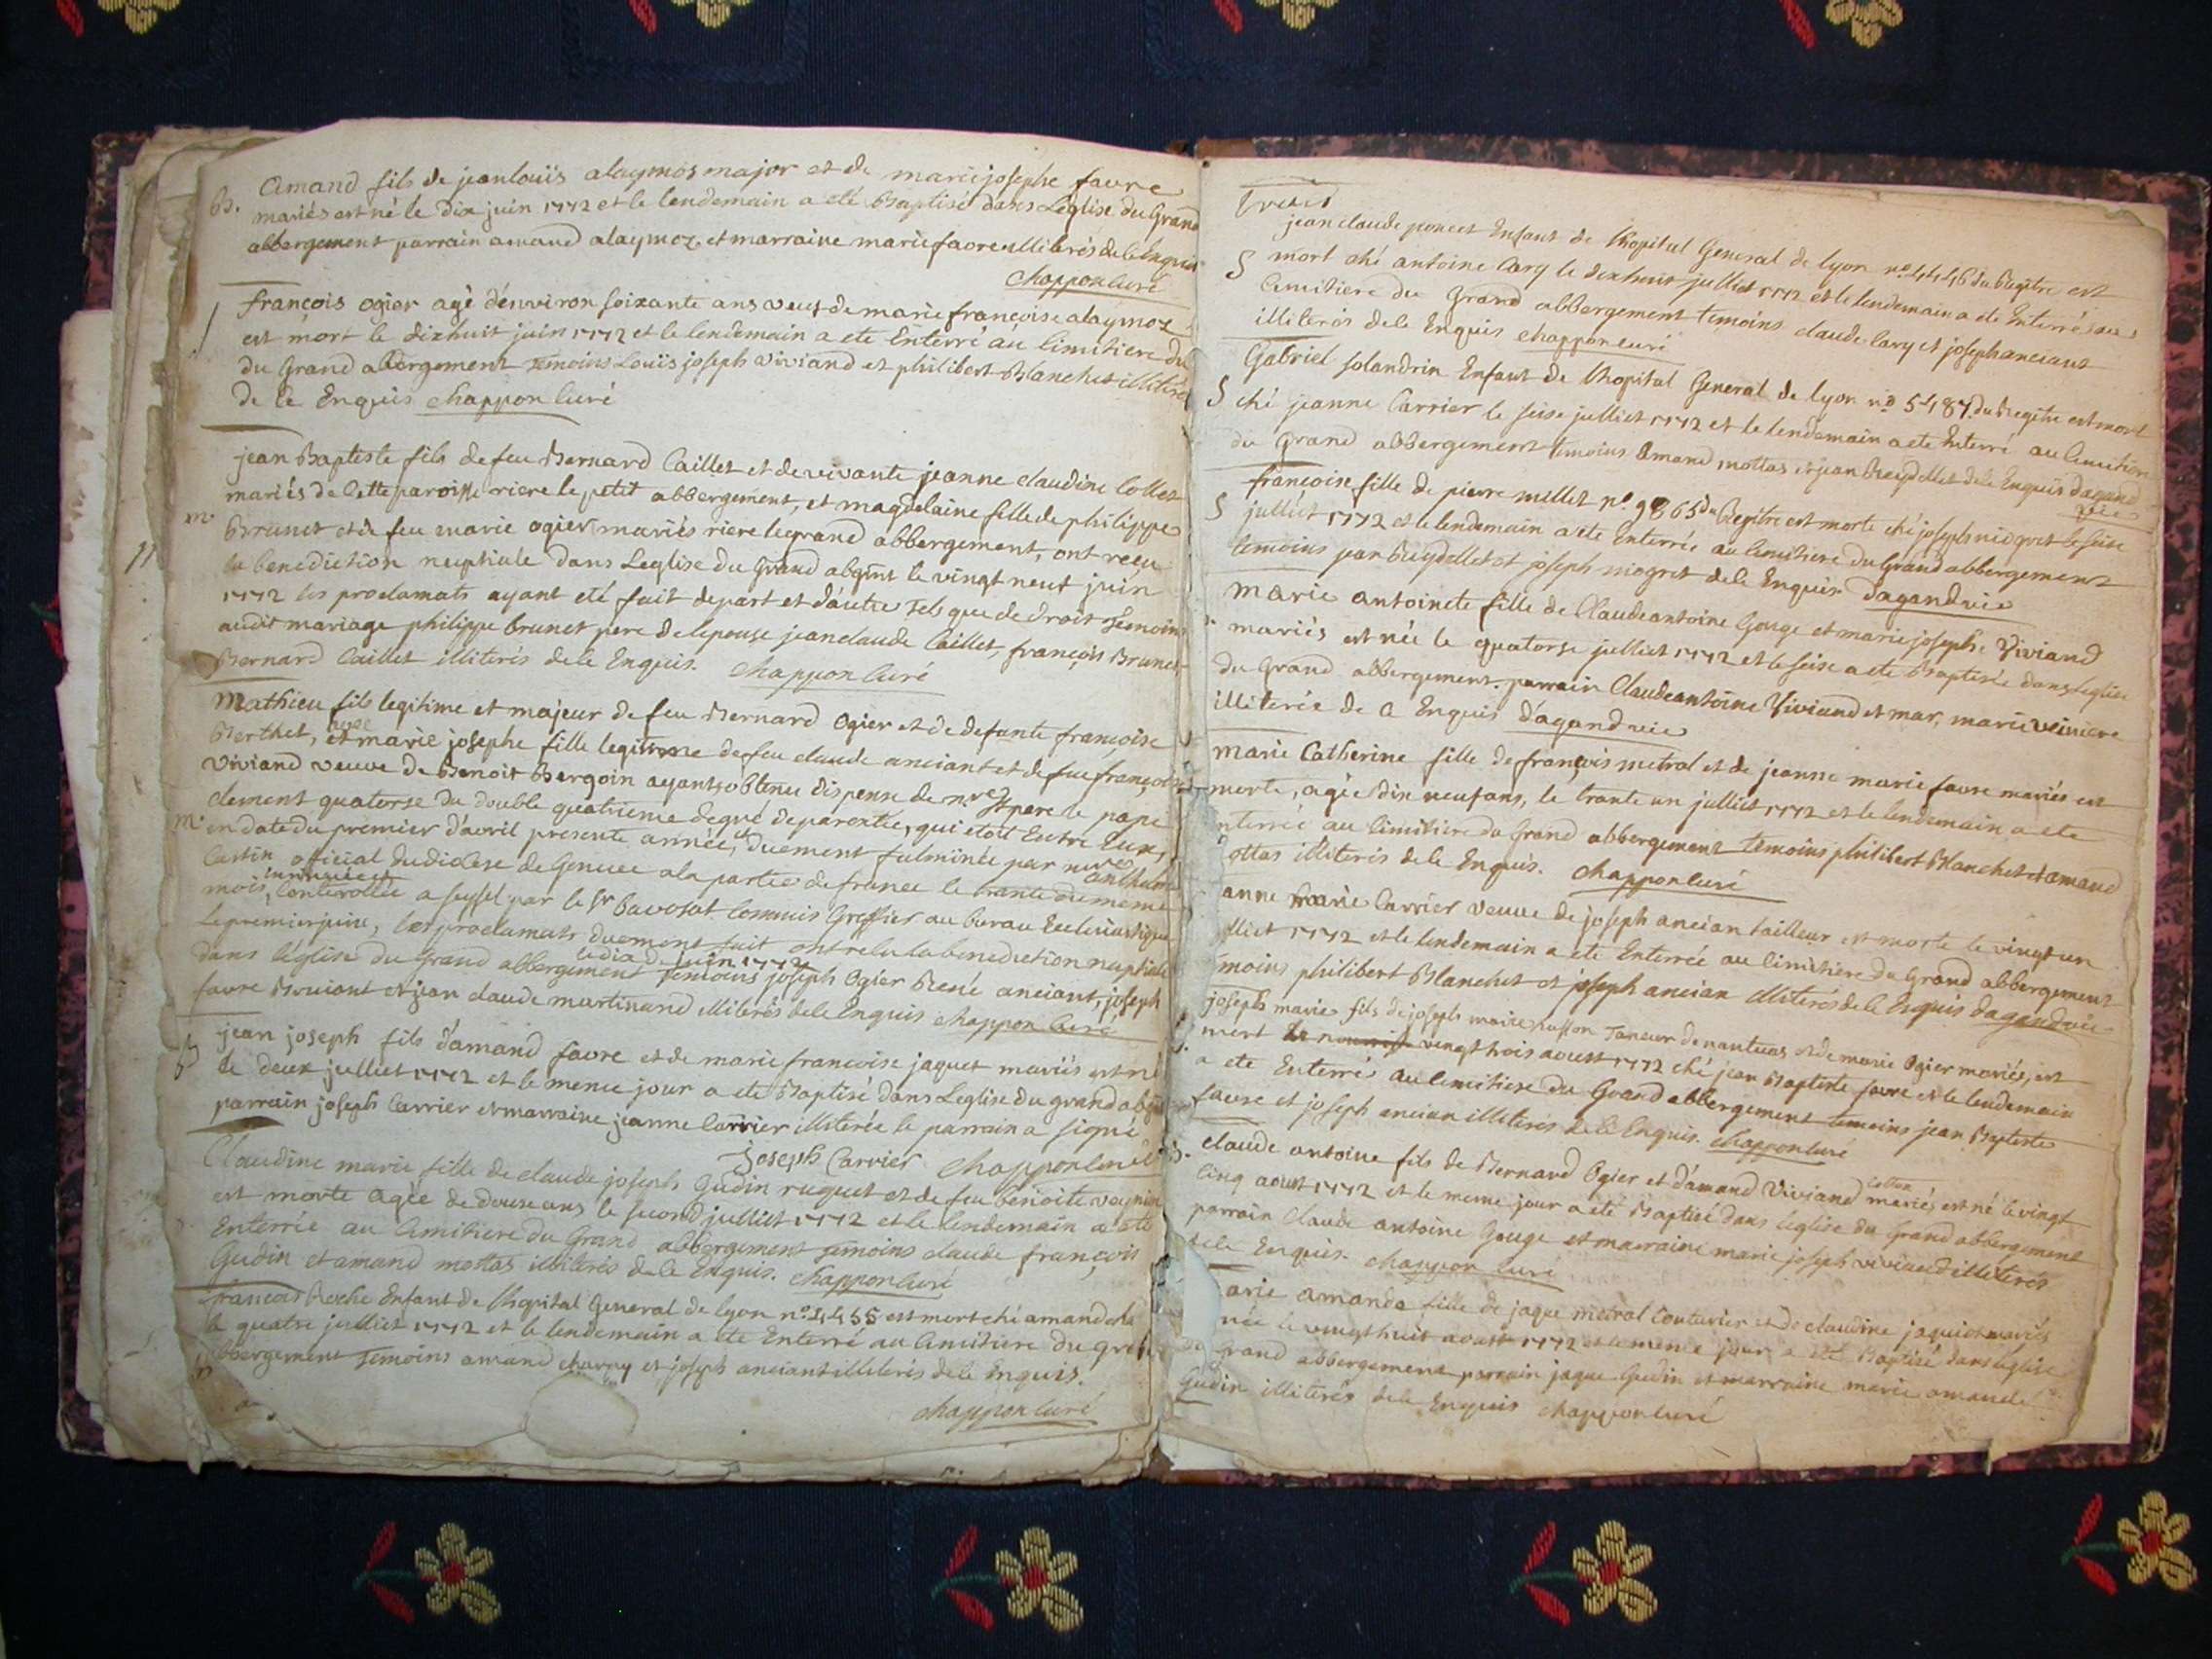 B. Amand fils de jeanlouïs alaymos major et de marie josephe favre
mariés est né le dix juin 1772 et le lendemain a eté Baptisé dans Leglise du Grand
abbergement parrain amand alaymoz et marraine marie favre illiterés de le Enquis
chappon curé
françois ogier agé d'environ soixante ans veuf de marie françoise alaymoz
est mort le dixhuit juin 1772 et le lendemain a ete Enterré au cimitiere du
du Grand abergement temoins Louis joseph viviand et philibert Blanchet illiterés
de le Enquis chappon curé
jean Baptiste fils de feu Bernard Caillet et de vivante jeanne claudine Collet
mariés de Cette paroisse riere le petit abbergement, et magdelaine fille de philippe
m. Brunet et de feu marie ogier mariés riere le grand abbergement, ont recu
11 la benediction nuptiale dans Leglise du Grand abgmt le vingt neuf juin
1772 les proclamats ayant eté fait de part et d'autre tels que de droit temoins
audit mariage philippe brunet pere de lepouse jean claude Caillet, françois Brunet
Bernard Caillet illiterés de le Enquis. chappon Curé
Mathieu fils legitime et majeur de feu Bernard Ogier et de defunte françoise
Berthet, et marie josephe fille legitime de feu claude anciant et de feu françoise
viviand veuve de Benoit Bergoin ayants obtenu dispense de nre St pere le pape
clement quatorse du double quatrieme degré de parentée, qui etoit Entre Eux,
m. en date du premier d'avril presente année, et duement fulminée par mre anthelme
Castin official du diocese de Geneve a la partie de france le trante du meme
mois, Controllée a seyssel par le Sr commis Greffier au bureau Ecclesiastique
le premier juin, les proclamats duement fait ont recu la benediction nuptiale
le dix de juin 1772
dans l'église du Grand abbergement temoins joseph Ogier René anciant, joseph
favre et jean claude martinand illiterés de le Enquis chappon Curé
B jean joseph fils d'amand favre et de marie francoise jaquet mariés est né
le deux julliet 1772 et le meme jour a ete Baptisé dans Leglise du grand abgmt
parrain joseph Carrier et marraine jeanne Carrier illiterée le parrain a signé
Joseph Carrier chappon curé
Claudine marie fille de claude joseph Gudin ruquet et de feu benoite
est morte agée de douze ans le second julliet 1772 et le lendemain a eté
Enterrée au Cimitiere du Grand abbergement temoins claude françois
Gudin et amand mottas illiterés de le Enquis. chappon curé
françois Roche Enfant de l'hopital General de lyon no. 4455 est mort ché amand
le quatre julliet 1772 et le lendemain a ete Enterré au Cimitiere du grand
abbergement temoins amand charvy et joseph anciant illiterés de le Enquis.
chappon curé
jean claude poncet Enfant de l'hopital General de lyon no. 4446 du Regitre est
S mort ché antoine Cary le dixhuit julliet 1772 et le lendemain a ete Enterré au
Cimitiere du Grand abbergement temoins claude Cary et joseph anciant
illiterés de le Enquis chappon curé
Gabriel solandrin Enfant de l'hopital General de lyon no 5487 du Regitre est mort
S ché jeanne Carrier le seise julliet 1772 et le lendemain a ete Enterré au Cimitiere
du Grand abbergement temoins Amand mottas et jean Reydellet de le Enquis dagand
vic
françoise fille de pierre millet no. 9865 du Regitre est morte ché joseph niogret le seise
S julliet 1772 et le lendemain a ete Enterrée au Cimitiere du Grand abbergement
temoins jean Reydellet et joseph niogret de le Enquis dagand vic
Marie antoinete fille de Claude antoine Gouge et marie joseph Viviand
mariés est née le quatorse julliet 1772 et le seise a ete Baptisée dans leglise
du Grand abbergement. parrain Claude antoine Viviand et mar, marie
illiterée de le Enquis d'agand vic
Marie Catherine fille de françois metral et de jeanne marie favre mariés est
morte, agée dix neuf ans, le trante un julliet 1772 et le lendemain a ete
nterrée au Cimitiere du Grand abbergement temoins philibert Blanchet et amand
ottas illiterés de le Enquis. chappon curé
anne marie Carrier veuve de joseph ancian tailleur est morte le vingt un
lliet 1772 et le lendemain a ete Enterrée au Cimitiere du Grand abbergement
moins philibert Blanchet et joseph ancian illiterés de le Enquis dagand vic
joseph marie fils de joseph marie Taneur de nantuas et de marie Ogier mariés, est
mort vingt trois aoust 1772 ché jean Baptiste favre et le lendemain
a ete Enterré au Cimitiere du Grand abbergement temoins jean Baptiste
favre et joseph ancian illiterés de le Enquis. chappon curé
B. Claude antoine fils de Bernard Ogier et d'amand Viviand mariés, est né le vingt
Cinq aoust 1772 et le meme jour a eté Baptisé dans l'eglise du Grand abbergement
parrain Claude antoine Gouge et marraine marie joseph viviand illiterés
de le Enquis. chappon curé
arie amande fille de jaque metral Couturier et de claudine jaquiot mariés
née le vingt huit aoust 1772 et le meme jour a eté Baptisé dans l'eglise
du Grand abbergement parrain jaque Gudin et marraine marie amande
Gudin illiterés de le Enquis chappon curé